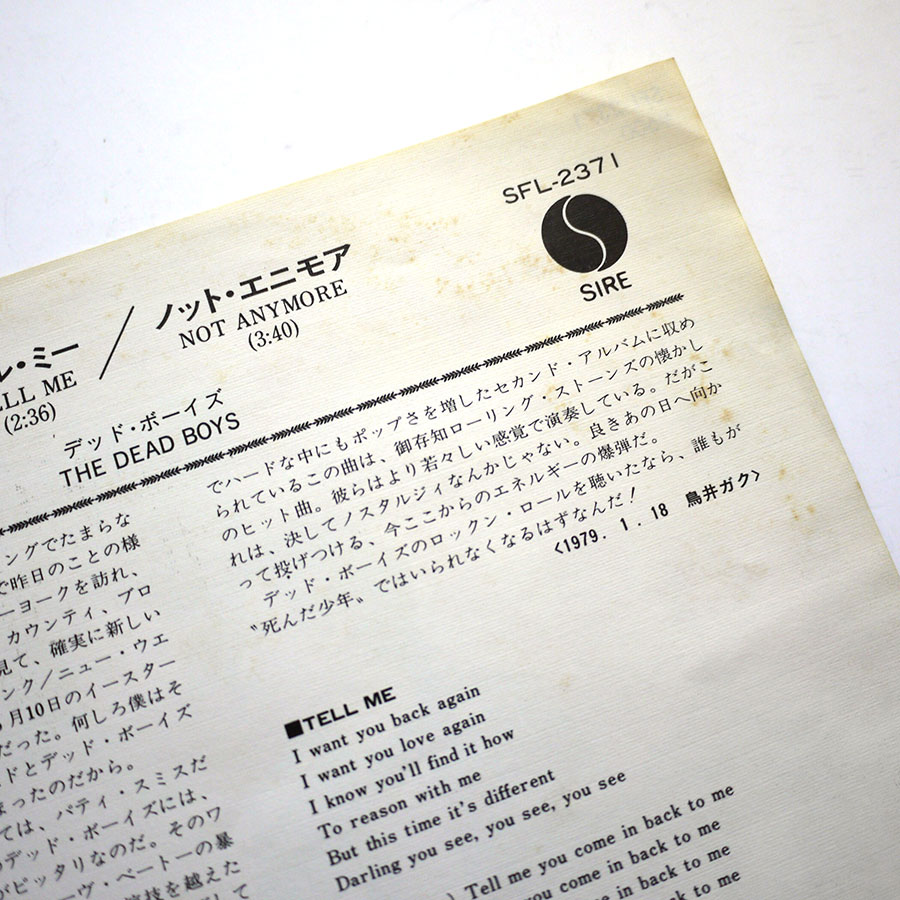 SFL-2371
SIRE
ル・ミー / ノット・エニモア
ELL ME NOT ANYMORE
(2:36) (3:40)
デッド・ボーイズ
THE DEAD BOYS
ングでたまらな
で昨日のことの様
ーヨークを訪れ、
カウンティ、ブロ
見て、確実に新しい
ンク/ニュー・ウエ
月10日のイースター
だった。何しろ僕はそ
ドとデッド・ボーイズ
まったのだから。
ては、パティ・スミスだ
デッド・ボーイズには、
がピッタリなのだ。そのワ
ーヴ・ベートーの暴
演技を越えた
でハードな中にもポップさを増したセカンド・アルバムに収め
られているこの曲は、御存知ローリング・ストーンズの懐かし
のヒット曲。彼らはより若々しい感覚で演奏している。だがこ
れは、決してノスタルジィなんかじゃない。良きあの日へ向か
って投げつける、今ここからのエネルギーの爆弾だ。
デッド・ボーイズのロックン・ロールを聴いたなら、誰もが
〝死んだ少年〟ではいられなくなるはずなんだ!
<1979. 1. 18 鳥井ガク>
■TELL ME
I want you back again
I want you love again
I know you'll find it how
To reason with me
But this time it's different
Darling you see, you see, you see
) Tell me you come in back to me
you come in back to me
come in back to me
back to me